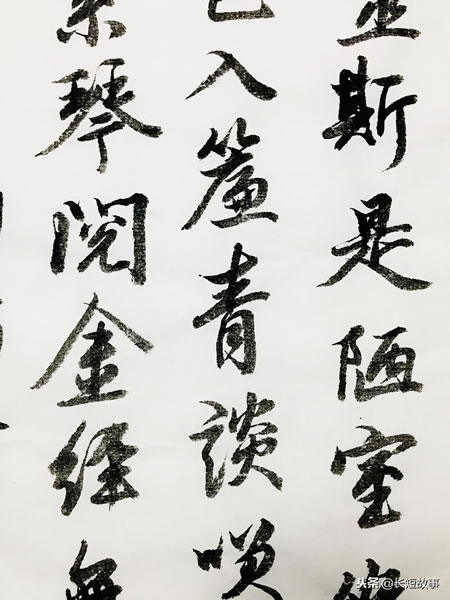 斯是陋室
入簾青談咲
素琴閱金經無
头条@长短故事